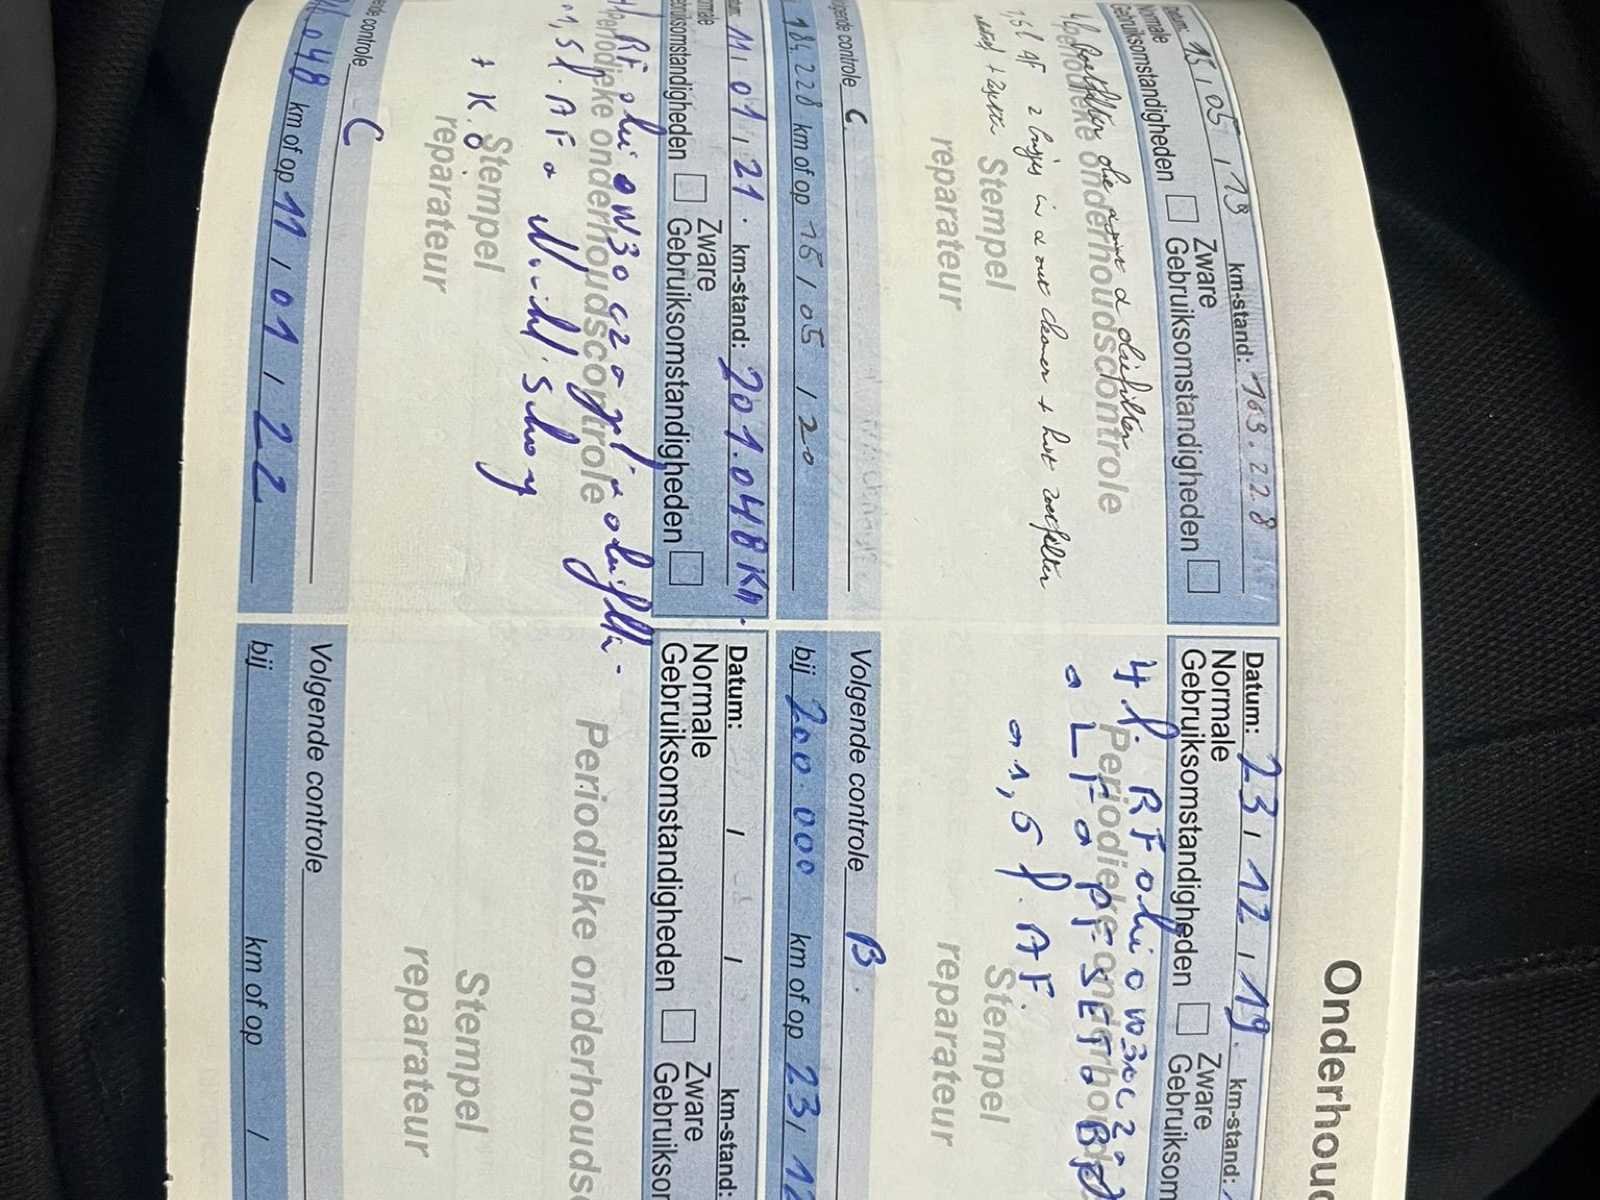 Onderhoud
Datum: 15 / 05 / 19 km-stand: 169.228
Normale Zware
Gebruiksomstandigheden Gebruiksomstandigheden
Periodieke onderhoudscontrole
1,5 l AF 2 busjes in & out cleaner + hut
Stempel
reparateur
controle C
184.228 km of op 15 / 05 / 20
Datum: 23 / 12 / 19. km-stand:
Normale Zware
Gebruiksomstandigheden Gebruiksom
4 l. RF olie 0W30 C2
Periodieke onderho
LF PF SET
1,5 l. AF.
Stempel
reparateur
Volgende controle B.
bij 200.000 km of op 23 / 12
11 / 01 / 21. km-stand: 201.048 KM.
Zware
Gebruiksomstandigheden Gebruiksomstandigheden
RF olie 0W30 C2
Periodieke onderhoudscontrole
1,5 l. AF
+ K.O
Stempel
reparateur
controle C
048 km of op 11 / 01 / 22
Datum: / / km-stand:
Normale Zware
Gebruiksomstandigheden Gebruiksor
Periodieke onderhouds
Stempel
reparateur
Volgende controle
bij km of op /